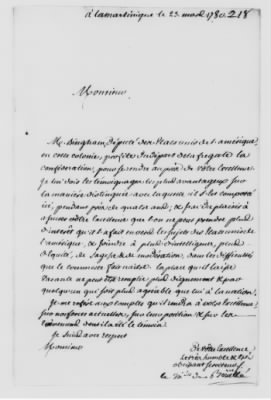 à la martinique le 23. mars 1780. 218
Monsieur
Mr. Bingham, député des États unis de l'amérique,
en cette colonie, profite du départ de la fregate la
confédération, pour se rendre au près de votre Excellence
Je lui dois les témoignages les plus avantageux sur
la manière distinguée avec laquelle il s'est comporté
ici, pendant près de quatre ans; & j'ai du plaisir à
assurer votre Excellence que l'on ne peut prendre plus
d'intérêt qu'il a fait envers les sujets des États unis de
l'amérique, & joindre à plus d'intelligence, plus
d'équité, de sagesse & de modération, dans les difficultés
que le commerce fait naître. la place qu'il laisse
vacante ne peut être remplie plus dignement & par
quelqu'un qui fut plus agréable que lui à la nation.
Je me réfère aux comptes qu'il rendra à votre Excellence,
sur nos forces actuelles, sur leur position & sur les
Je suis avec respect
Monsieur
De votre Excellence
Le très humble & très
obéissant serviteur
le Mis. de Bouillé